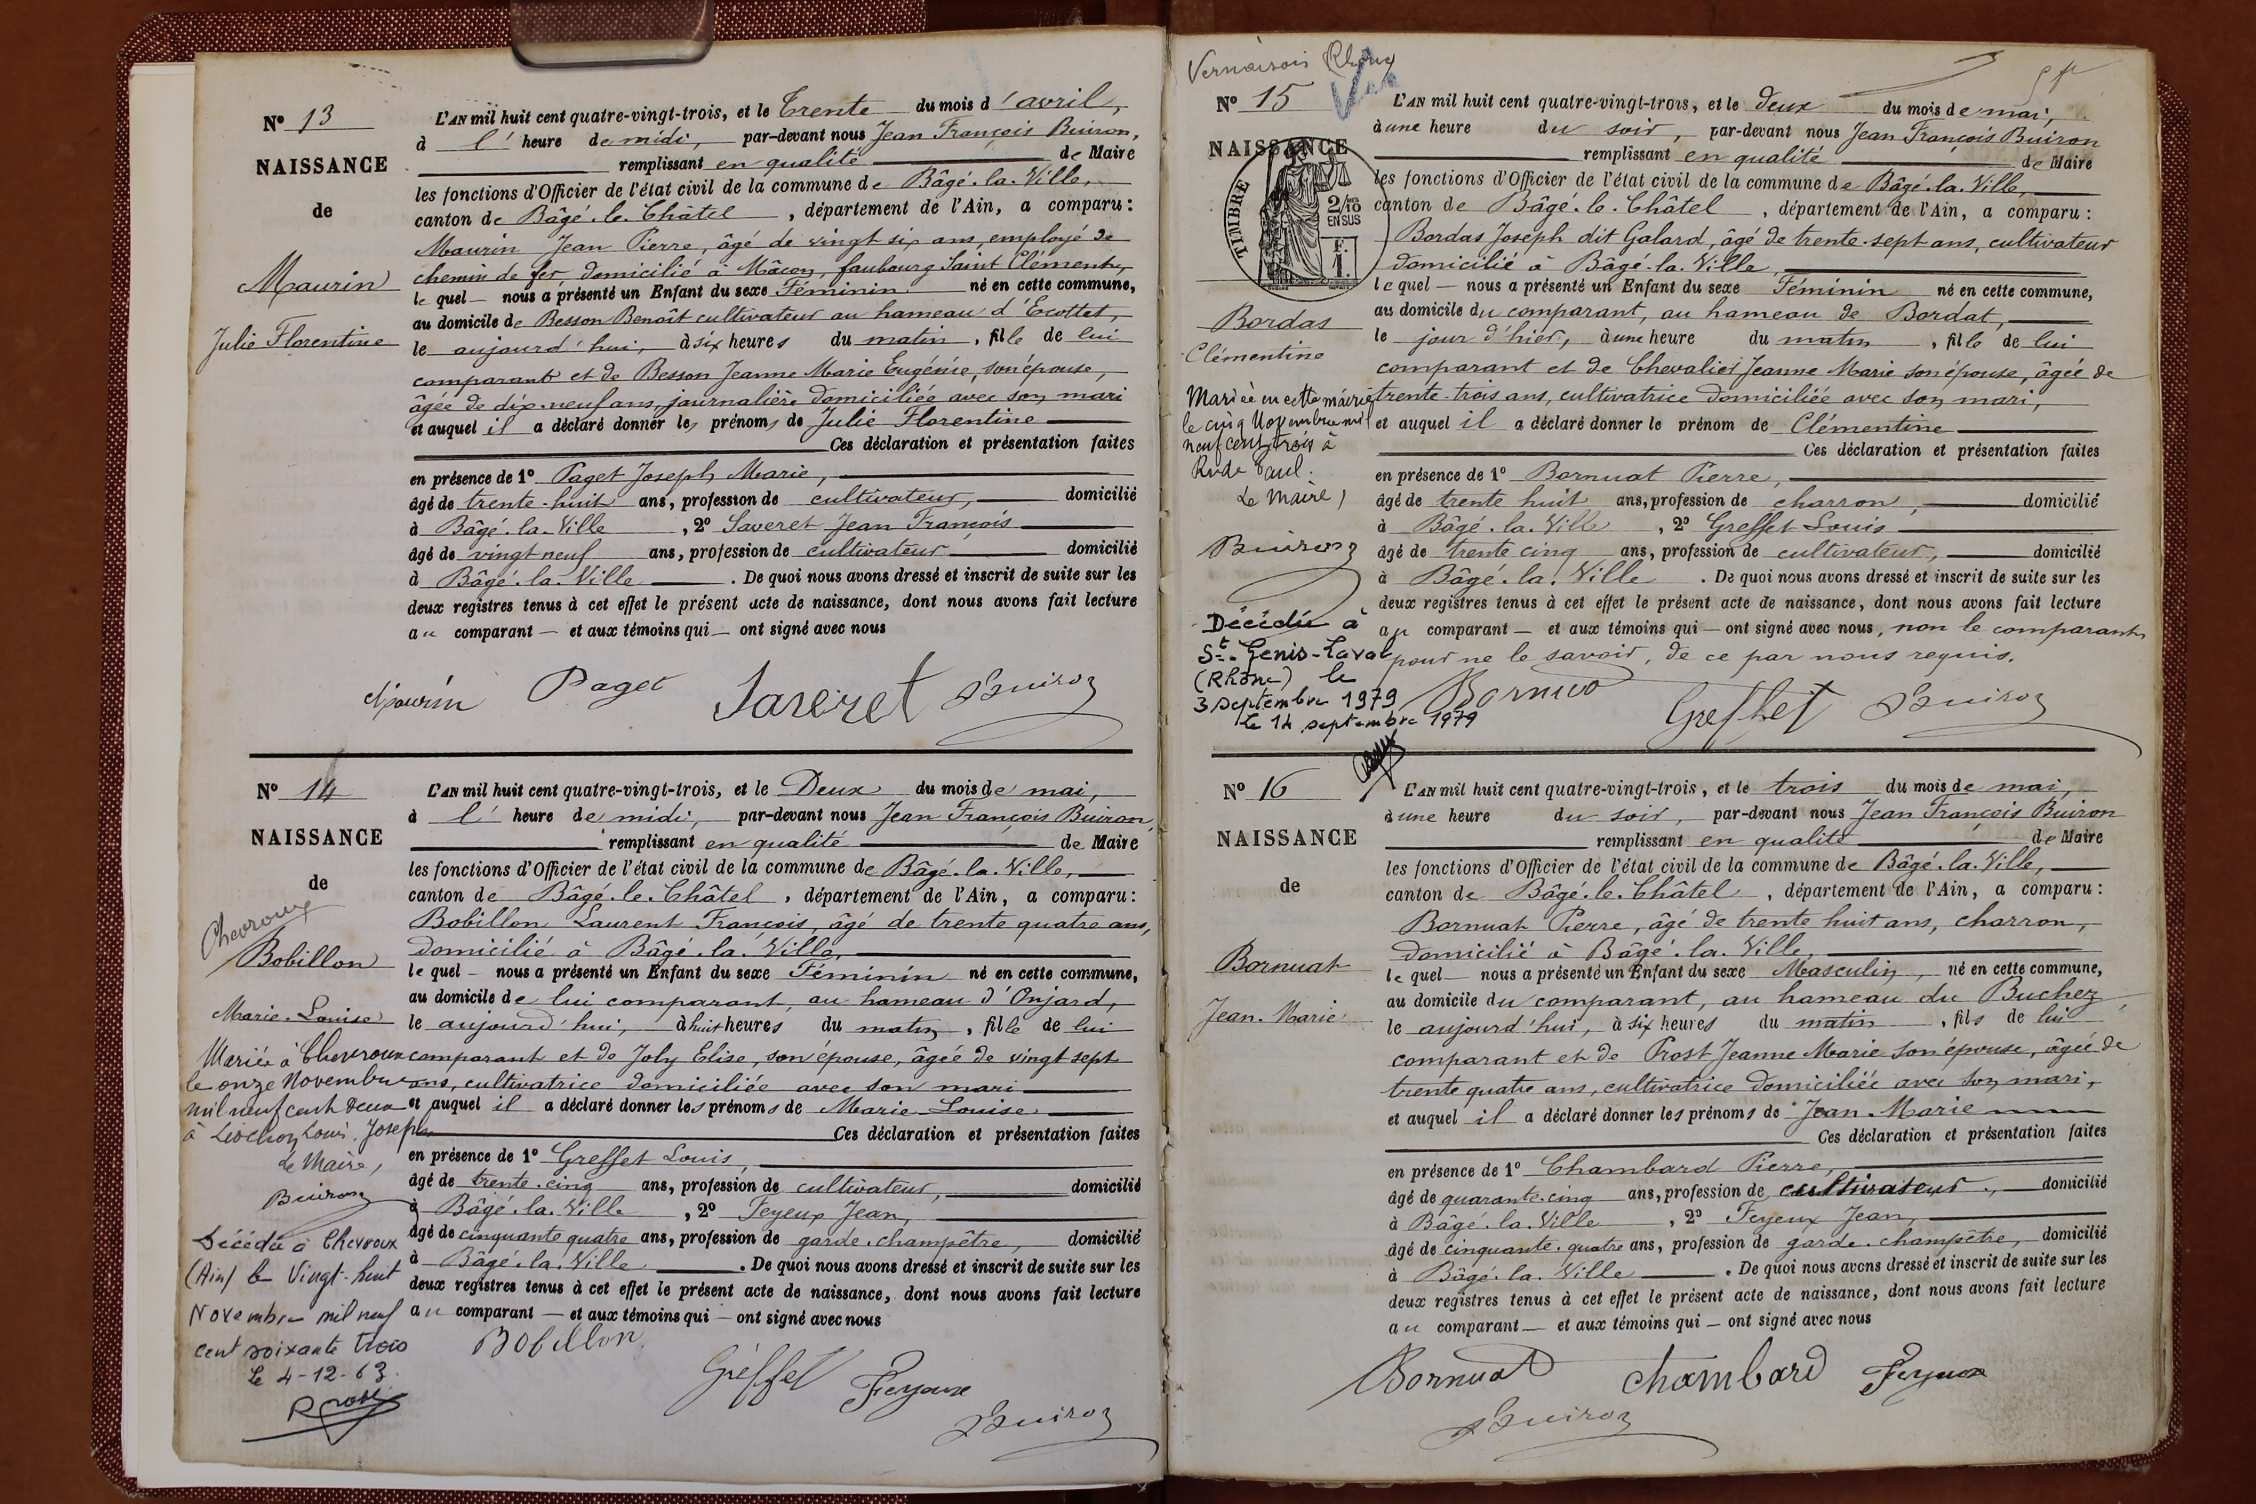 N° 13
NAISSANCE
de
Maurin
Julie Florentine
L'AN mil huit cent quatre-vingt-trois, et le Trente du mois d'avril,
à l' heure de midi, par-devant nous Jean François Buiron,
remplissant en qualité de Maire
les fonctions d'Officier de l'état civil de la commune de Bâgé-la-Ville,
canton de Bâgé-le-Châtel, département de l'Ain, a comparu:
Maurin Jean Pierre, âgé de vingt six ans, employé de
chemin de fer, domicilié à Mâcon, faubourg Saint Clément,
lequel nous a présenté un Enfant du sexe Féminin né en cette commune,
au domicile de Besson Benoît cultivateur au hameau d'Ecottet,
le aujourd'hui, à six heures du matin, fille de lui
comparant et de Besson Jeanne Marie Eugénie, son épouse,
âgée de dix-neuf ans, journalière domiciliée avec son mari
et auquel il a déclaré donner les prénoms de Julie Florentine
Ces déclaration et présentation faites
en présence de 1° Paget Joseph Marie,
âgé de trente-huit ans, profession de cultivateur, domicilié
à Bâgé-la-Ville, 2° Saveret Jean François
âgé de vingt neuf ans, profession de cultivateur domicilié
à Bâgé-la-Ville. De quoi nous avons dressé et inscrit de suite sur les
deux registres tenus à cet effet le présent acte de naissance, dont nous avons fait lecture
au comparant et aux témoins qui ont signé avec nous
Maurin Paget Saveret Buiron
N° 14
NAISSANCE
de
Chevroux
Bobillon
Marie-Louise
Mariée à Chevroux
le onze Novembre
mil neuf cent deux
à Louis Joseph
Le Maire,
Buiron
Décédée à Chevroux
(Ain) le Vingt-huit
Novembre mil neuf
cent soixante trois
Le 4-12-63.
L'AN mil huit cent quatre-vingt-trois, et le Deux du mois de mai,
à l' heure de midi, par-devant nous Jean François Buiron,
remplissant en qualité de Maire
les fonctions d'Officier de l'état civil de la commune de Bâgé-la-Ville,
canton de Bâgé-le-Châtel, département de l'Ain, a comparu:
Bobillon Laurent François, âgé de trente quatre ans,
domicilié à Bâgé-la-Ville,
lequel nous a présenté un Enfant du sexe Féminin né en cette commune,
au domicile de lui comparant, au hameau d'Onjard,
le aujourd'hui, à huit heures du matin, fille de lui
comparant et de Joly Elise, son épouse, âgée de vingt sept
ans, cultivatrice domiciliée avec son mari
et auquel il a déclaré donner les prénoms de Marie-Louise
Ces déclaration et présentation faites
en présence de 1° Greffet Louis,
âgé de trente-cinq ans, profession de cultivateur, domicilié
à Bâgé-la-Ville, 2° Feyeux Jean,
âgé de cinquante quatre ans, profession de garde-champêtre, domicilié
à Bâgé-la-Ville. De quoi nous avons dressé et inscrit de suite sur les
deux registres tenus à cet effet le présent acte de naissance, dont nous avons fait lecture
au comparant et aux témoins qui ont signé avec nous
Bobillon Greffet Feyeux
Buiron
Vernaison Rhône
N° 15
NAISSANCE
TIMBRE
2/10
EN SUS
F.
1.
Bordas
Clémentine
Mariée en cette mairie
le cinq Novembre mil
neuf cent trois à
Rude Paul.
Le Maire,
Buiron
Décédée à
St-Genis-Laval
(Rhône) le
3 septembre 1979
le 14 septembre 1979
L'AN mil huit cent quatre-vingt-trois, et le deux du mois de mai,
à une heure du soir, par-devant nous Jean François Buiron
remplissant en qualité de Maire
les fonctions d'Officier de l'état civil de la commune de Bâgé-la-Ville,
canton de Bâgé-le-Châtel, département de l'Ain, a comparu:
Bordas Joseph dit Galard, âgé de trente-sept ans, cultivateur
domicilié à Bâgé-la-Ville,
lequel nous a présenté un Enfant du sexe Féminin né en cette commune,
au domicile du comparant, au hameau de Bordat,
le jour d'hier, à une heure du matin, fille de lui
comparant et de Chevalier Jeanne Marie son épouse, âgée de
trente-trois ans, cultivatrice domiciliée avec son mari,
et auquel il a déclaré donner le prénom de Clémentine
Ces déclaration et présentation faites
en présence de 1° Bornuat Pierre,
âgé de trente huit ans, profession de charron, domicilié
à Bâgé-la-Ville, 2° Greffet Louis
âgé de trente cinq ans, profession de cultivateur, domicilié
à Bâgé-la-Ville. De quoi nous avons dressé et inscrit de suite sur les
deux registres tenus à cet effet le présent acte de naissance, dont nous avons fait lecture
au comparant et aux témoins qui ont signé avec nous, non le comparant
pour ne le savoir, de ce par nous requis.
Bornuat Greffet Buiron
N° 16
NAISSANCE
de
Bornuat
Jean-Marie
L'AN mil huit cent quatre-vingt-trois, et le trois du mois de mai,
à une heure du soir, par-devant nous Jean François Buiron
remplissant en qualité de Maire
les fonctions d'Officier de l'état civil de la commune de Bâgé-la-Ville,
canton de Bâgé-le-Châtel, département de l'Ain, a comparu:
Bornuat Pierre, âgé de trente huit ans, charron,
domicilié à Bâgé-la-Ville,
lequel nous a présenté un Enfant du sexe Masculin, né en cette commune,
au domicile du comparant, au hameau du Buchez,
le aujourd'hui, à six heures du matin, fils de lui
comparant et de Prost Jeanne Marie son épouse, âgée de
trente quatre ans, cultivatrice domiciliée avec son mari,
et auquel il a déclaré donner les prénoms de Jean-Marie
Ces déclaration et présentation faites
en présence de 1° Chambard Pierre,
âgé de quarante-cinq ans, profession de cultivateur, domicilié
à Bâgé-la-Ville, 2° Feyeux Jean,
âgé de cinquante-quatre ans, profession de garde-champêtre, domicilié
à Bâgé-la-Ville. De quoi nous avons dressé et inscrit de suite sur les
deux registres tenus à cet effet le présent acte de naissance, dont nous avons fait lecture
au comparant et aux témoins qui ont signé avec nous
Bornuat Chambard Feyeux
Buiron